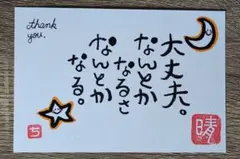 thank
you.
大丈夫。
なんとか
なるさ
なんとか
なる。
晴
ち